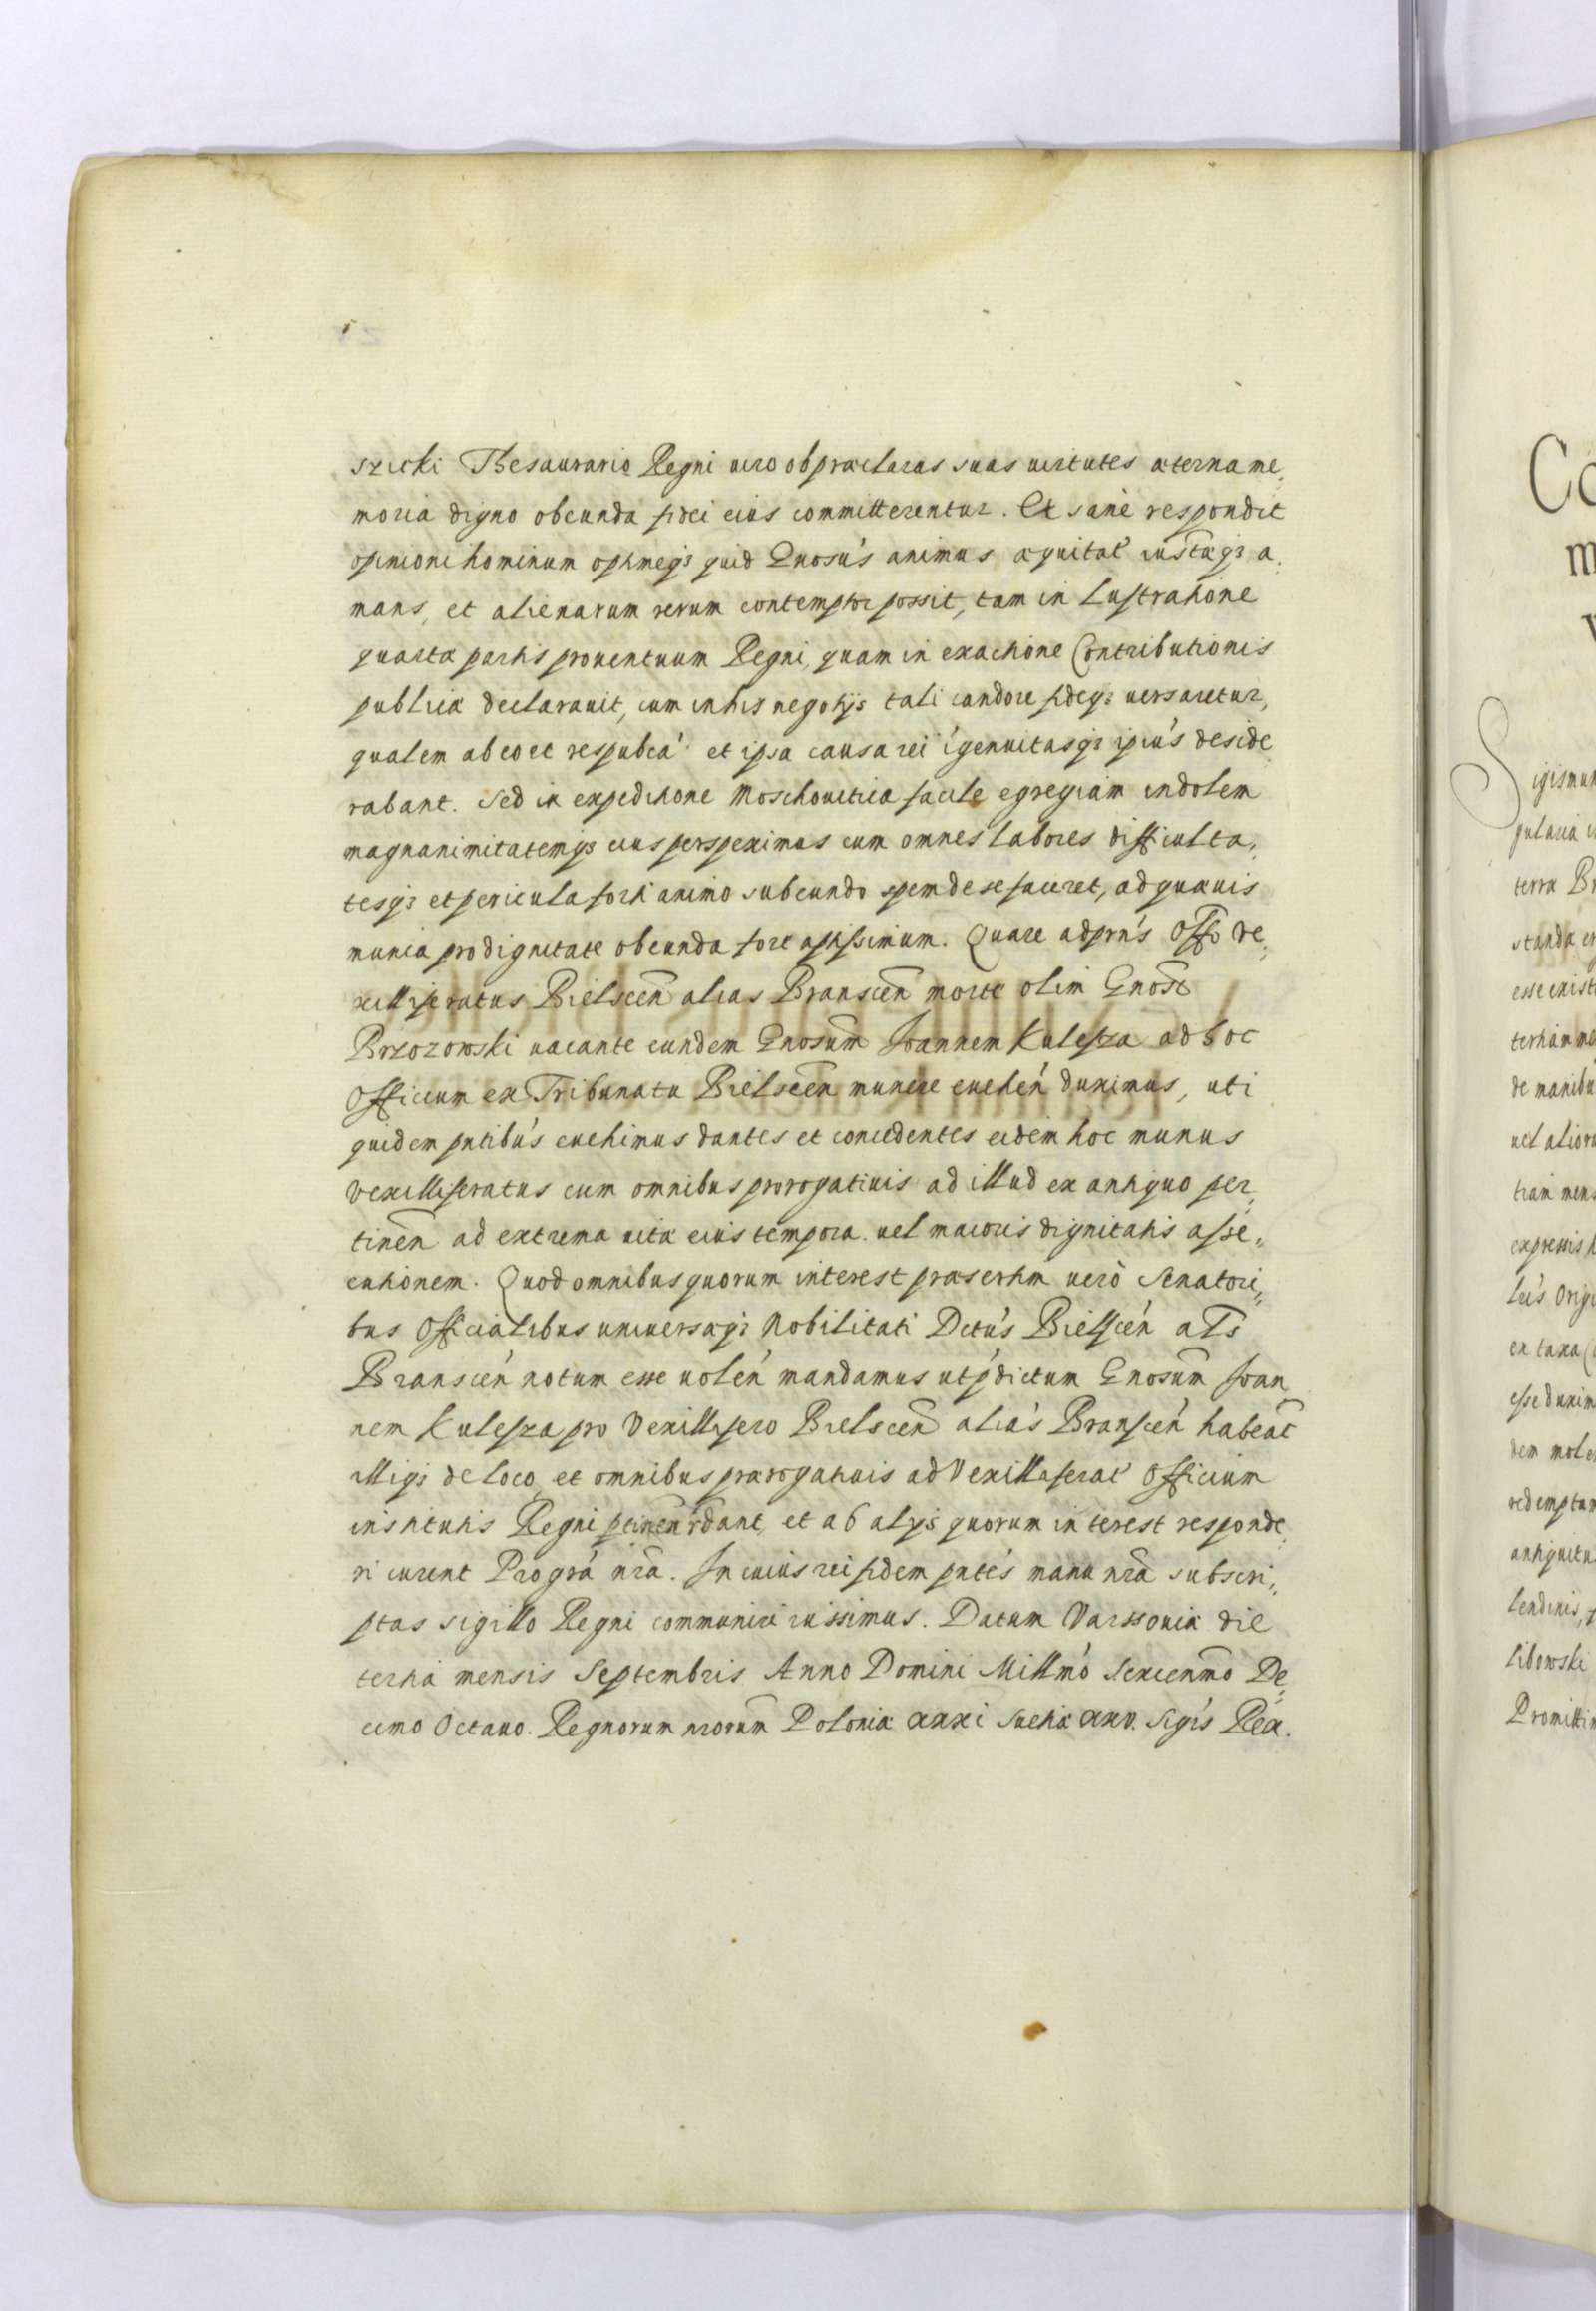 szicki Thesaurario Regni uiro ob praeclaras suas uirtutes aeterna me,
moria digno obeunda fidei eius committerentur. Et sanè respondit
opinioni hominum optimeq3 quid Gnosús animus aequitat́ iustaeq3 a,
mans, et alienarum rerum contemptor possit, tam in Lustratione
quarta partis prouentuum Regni, quam in exactione Contributionis
publicae declarauit, cum in his negotijs tali candore fideq3 uersaretur,
qualem ab eo et respubcá et ipsa causa rei igenuitasq3 ipiús deside
rabant. Sed in expeditione Moschouitica facile egregiam indolem
magnanimitatemq3 eius perspeximus cum omnes labores difficulta,
tesq3 et pericula forti animo subeundo spem de se faceret, ad quaeuis
munia pro dignitate obeunda fore aptissimum. Quare ad prńs Offo Ve,
xilliferatus Bielscen̄ alias Branscen̄ morte olim Gnosi
Brzozowski uacante eundem Gnosum̄ Joannem Kulesza ad hoc
Officium ex Tribunatu Bielscen̄ munere euehen̄ duximus, uti
quidem pntibús euehimus dantes et concedentes eidem hoc munus
Vexilliferatus cum omnibus prorogatiuis ad illud ex antiquo per,
tinen̄ ad extrema uitae eius tempora uel maioris dignitatis asse,,
cutionem. Quod omnibus quorum interest praesertim uerò Senatori,,
bus Officialibus uniuersaeq3 Nobilitati Dctús Bielscén als̄
Branscén notum esse uolén mandamus ut p̄dictum Gnosum̄ Joan
nem Kulesza pro Vexillifero Bielscen̄ aliás Branscén habeat̄
illiq3 de loco, et omnibus praerogatiuis ad Vexilliferat́ Officium
institutis Regni ptinen̄ rdant, et ab alijs quorum interest responde,
ri curent Pro grá nrā. In cuius rei fidem pntés manu nrā subscri,,
ptas sigillo Regni communiri iussimus. Datum Varssouiae die
tertia mensis Septembris Anno Domini Millmó Sexcenmo De,
cimo Octauo. Regnorum nrorum̄ Poloniae xxxi Sueciae xxv. Sigis Rex.
Co
m
Sigismun
gularia
terra Br
standa
esse
de manibu
uel alior
tiam mens
expressis
lús Origi
ex taxa
esse duxim
dem
redemptam
antiquitu
lendinis,
libowski
Promitti